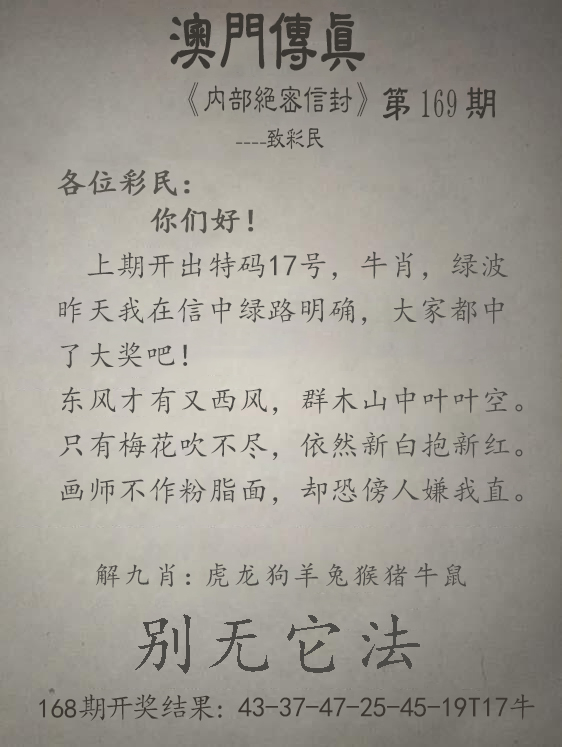 澳門傳眞
《内部絕密信封》第169期
----致彩民
各位彩民:
你们好!
上期开出特码17号,牛肖,绿波
昨天我在信中绿路明确,大家都中
了大奖吧!
东风才有又西风,群木山中叶叶空。
只有梅花吹不尽,依然新白抱新红。
画师不作粉脂面,却恐傍人嫌我直。
解九肖:虎龙狗羊兔猴猪牛鼠
别无它法
168期开奖结果: 43-37-47-25-45-19T17牛